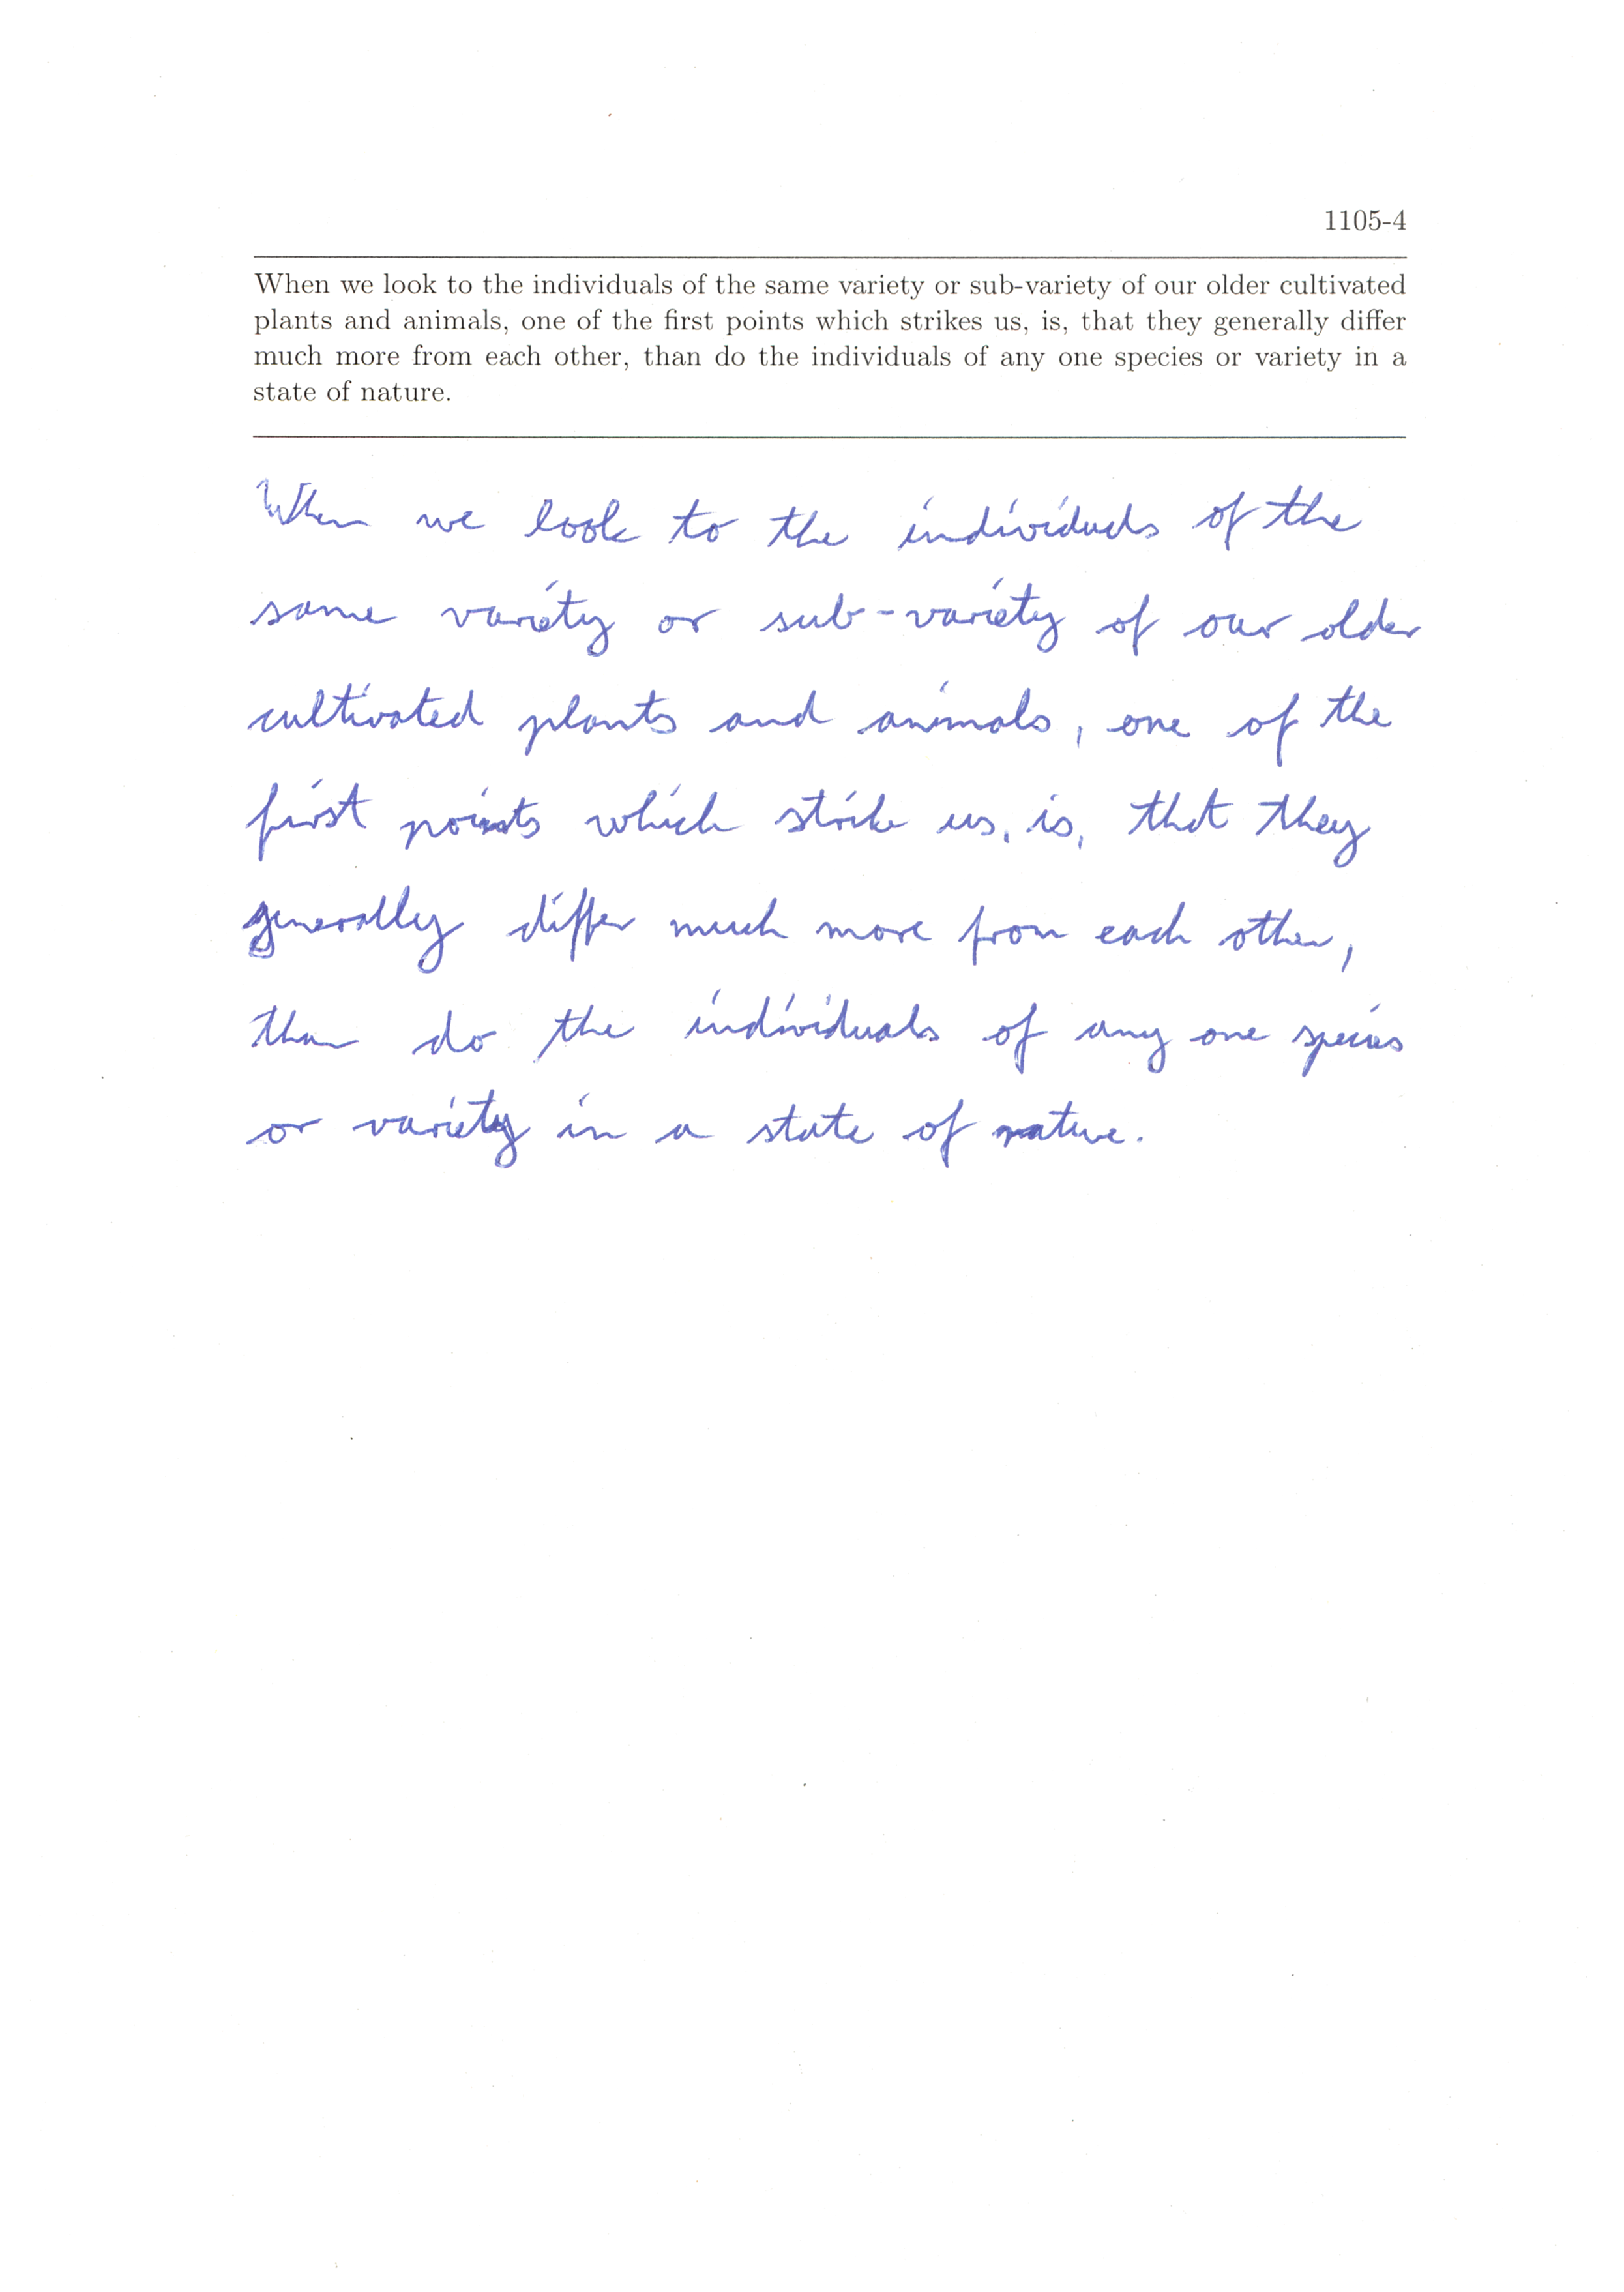 1105-4
When we look to the individuals of the same variety or sub-variety of our older cultivated
plants and animals, one of the first points which strikes us, is, that they generally differ
much more from each other, than do the individuals of any one species or variety in a
state of nature.
When we look to the individuals of the
same variety or sub-variety of our older
cultivated plants and animals, one of the
first points which strike us, is, that they
generally differ much more from each other,
than do the individuals of any one species
or variety in a state of nature.